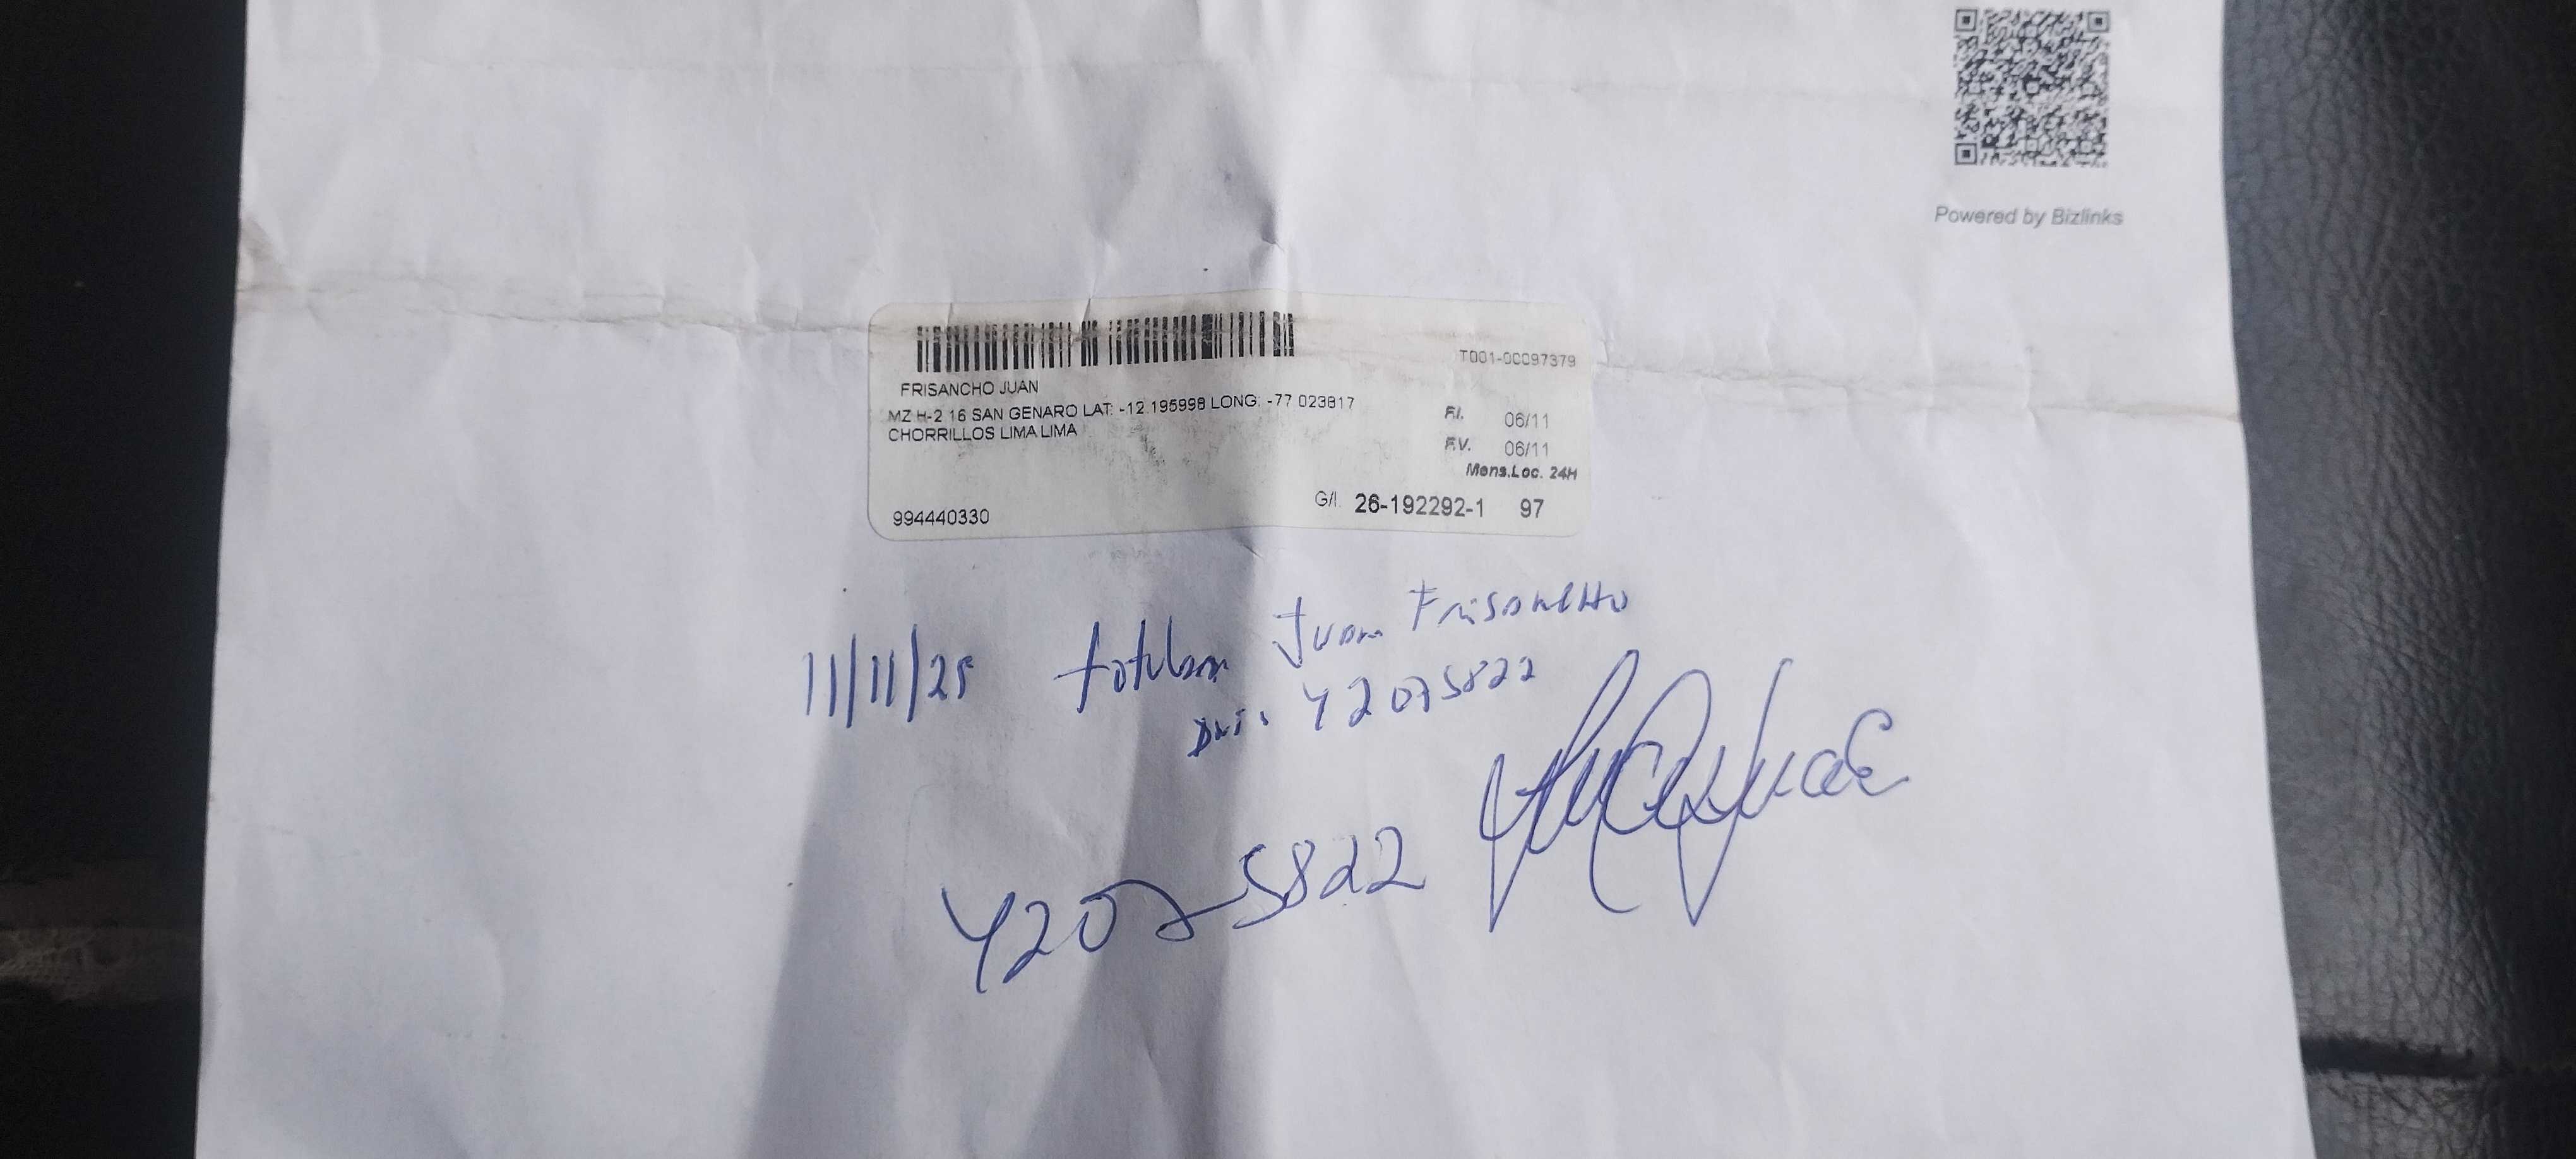 Powered by Bizlinks
T001-00097379
FRISANCHO JUAN
MZ H-2 16 SAN GENARO LAT: -12.195998 LONG: -77.023817
CHORRILLOS LIMA LIMA
F.I. 06/11
F.V. 06/11
Mens.Loc. 24H
G/I. 26-192292-1 97
994440330
11/11/25 titular Juan Frisancho
DNI: 42075822
42075822